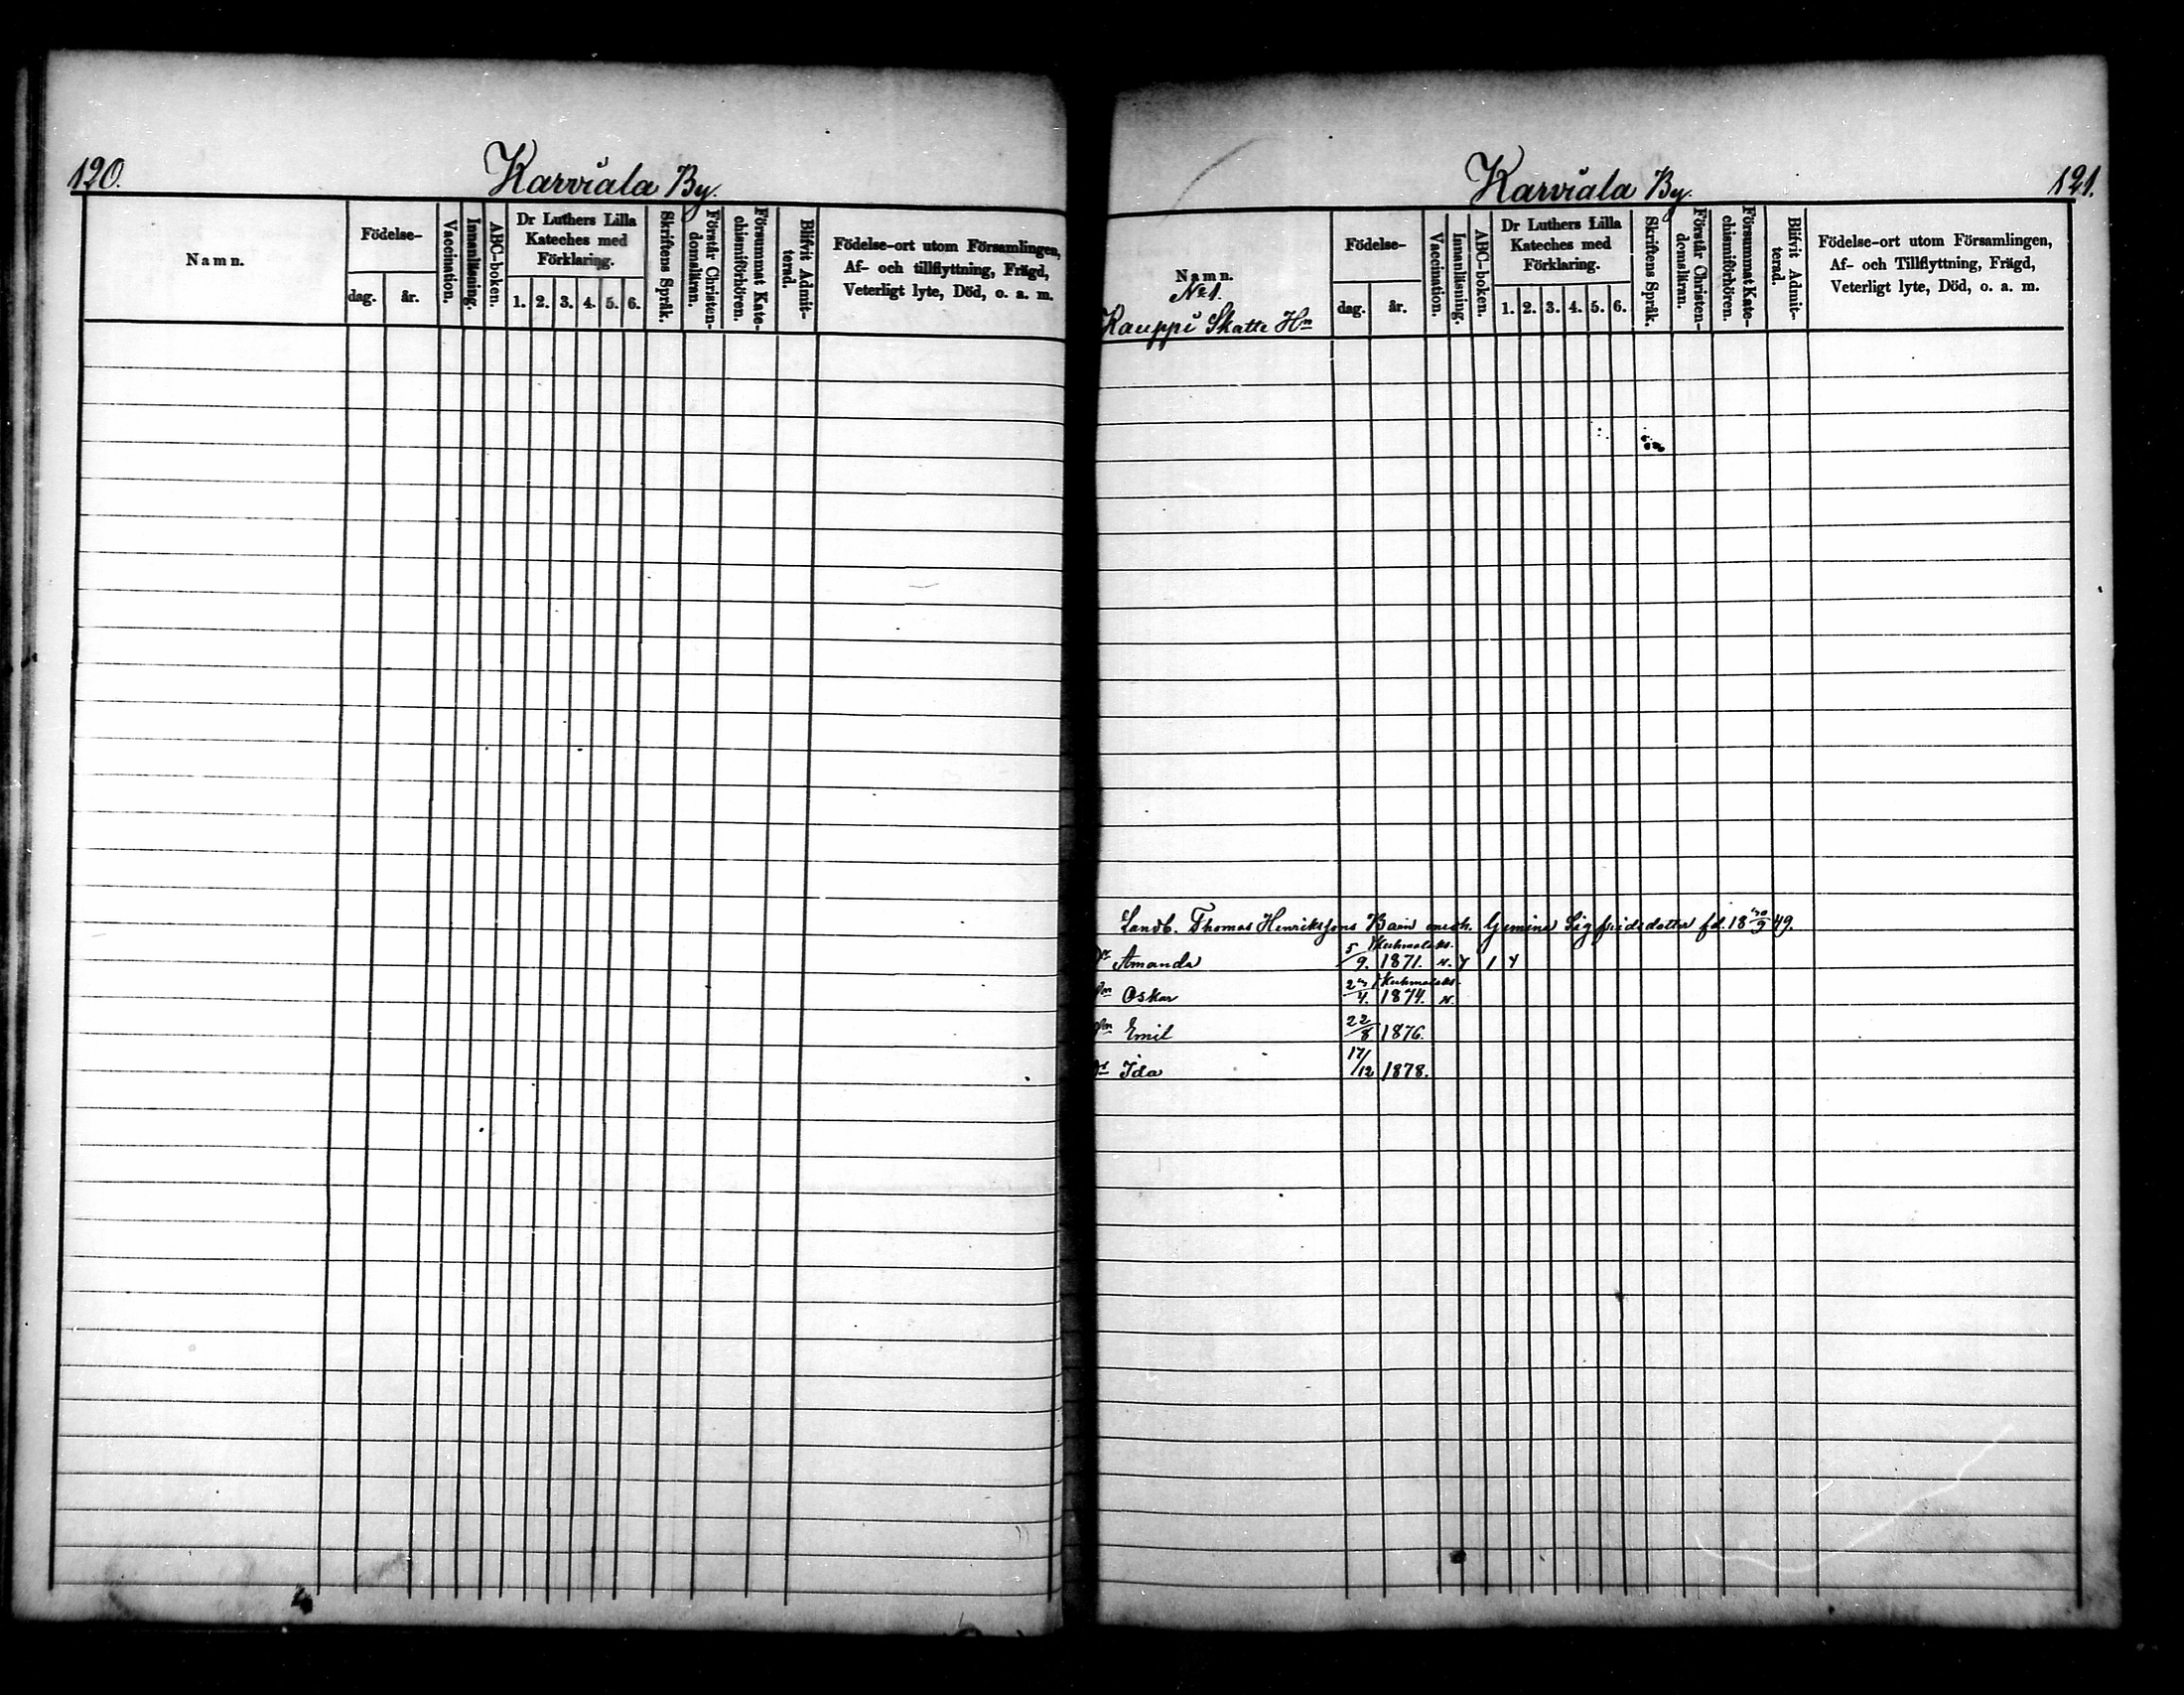 120.
Karviala By.
Namn.
Födelse-
dag.
år.
Vaccination.
Innanläsning.
ABC-boken.
Dr Luthers Lilla
Kateches med
Förklaring.
1. 2. 3. 4. 5. 6.
Skriftens Språk.
Förstår Christen-
domsläran.
Försummat Kate-
chismiförhören.
Blifvit Admit-
terad.
Födelse-ort utom Församlingen,
Af- och tillflyttning, Frägd,
Veterligt lyte, Död, o. a. m.
Karviala By.
121.
Namn.
№ 1.
Kauppi Skatte Hn
Födelse-
dag.
år.
Vaccination.
Innanläsning.
ABC-boken.
Dr Luthers Lilla
Kateches med
Förklaring.
1. 2. 3. 4. 5. 6.
Skriftens Språk.
Förstår Christen-
domsläran.
Försummat Kate-
chismiförhören.
Blifvit Admit-
terad.
Födelse-ort utom Församlingen,
Af- och Tillflyttning, Frägd,
Veterligt lyte, Död, o. a. m.
Landb. Thomas Henrikssons Barn med h. Sigfridsdotter fd. 18 49.
Amanda 5/9. 1871.
Oskar 1874.
Emil 22/8 1876.
Ida 17/12 1878.